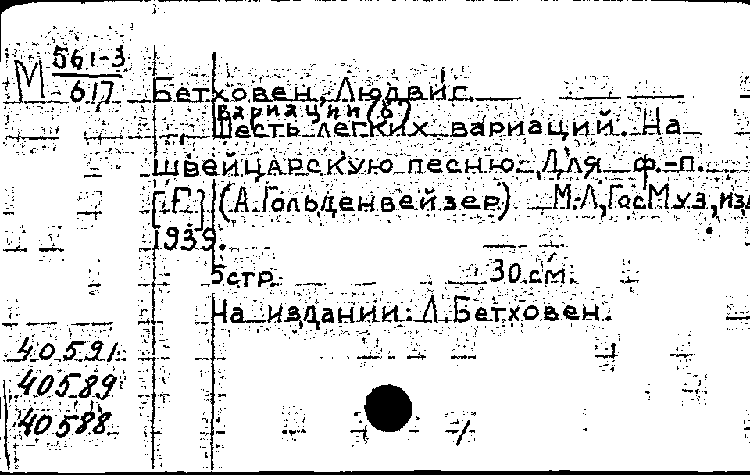 М 561-3
617
Бетховен, Людвиг.
Вариации (6)
Шесть легких вариаций. На
швейцарскую песню. Для ф.-п.
[F] (А. Гольденвейзер) М.-Л, Гос. Муз, изд
1939.
5 стр. 30 см.
На издании: Л. Бетховен.
40591
40589
40588